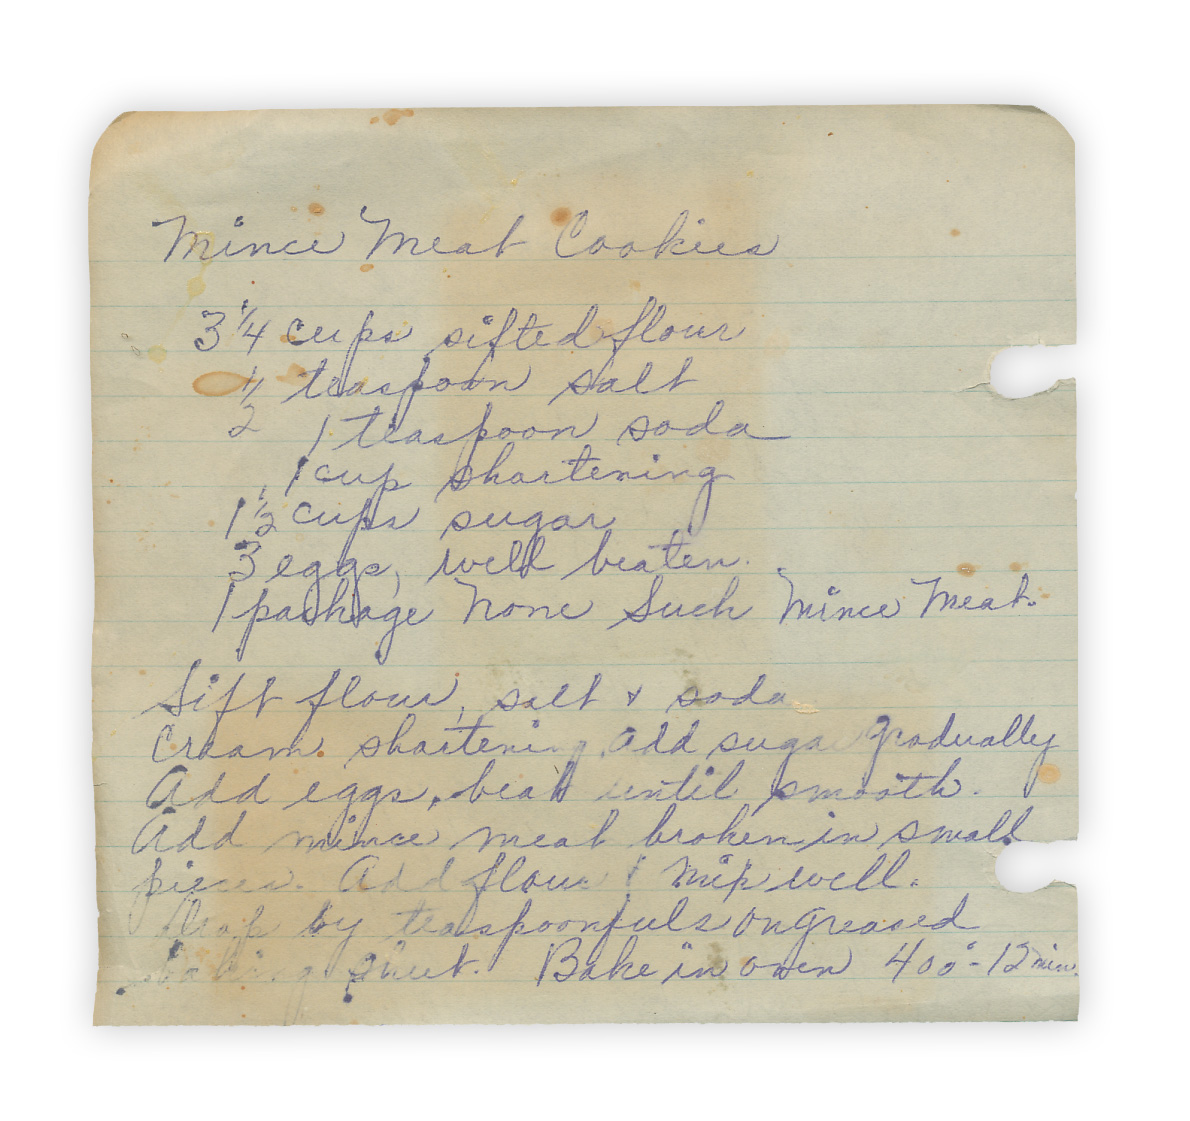 Mince Meat Cookies
3 1/4 cups sifted flour
1/2 teaspoon salt
1 teaspoon soda
1 cup shortening
1 1/2 cups sugar
3 eggs, well beaten.
1 package None Such Mince Meat.
Sift flour, salt & soda
Cream shortening, add sugar gradually
Add eggs, beat until smooth.
Add mince meat broken in small
pieces. Add flour & mix well.
Drop by teaspoonfuls on greased
baking sheet. Bake in oven 400° - 12 min.